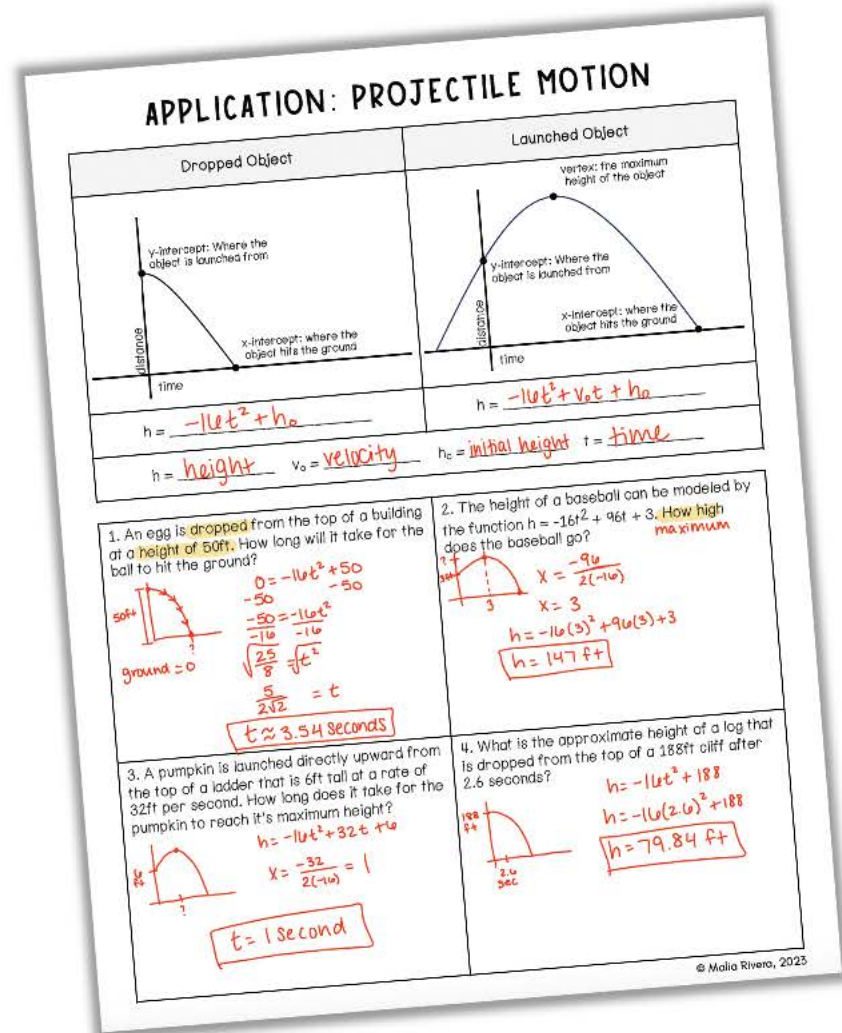 APPLICATION: PROJECTILE MOTION
Dropped Object
Launched Object
y-intercept: Where the
object is launched from
x-intercept: where the
object hits the ground
distance
time
vertex: the maximum
height of the object
y-intercept: Where the
object is launched from
x-intercept: where the
object hits the ground
distance
time
h = -16t² + h₀
h = -16t² + v₀t + h₀
h = height v₀ = velocity h₀ = initial height t = time
1. An egg is dropped from the top of a building
at a height of 50ft. How long will it take for the
ball to hit the ground?
50ft
?
ground = 0
0 = -16t² + 50
-50 -50
-50 = -16t²
-16 -16
√25/8 = √t²
5/2√2 = t
t ≈ 3.54 seconds
2. The height of a baseball can be modeled by
the function h = -16t² + 96t + 3. How high
maximum
does the baseball go?
?
3ft
3
x = -96/2(-16)
x = 3
h = -16(3)² + 96(3) + 3
h = 147 ft
3. A pumpkin is launched directly upward from
the top of a ladder that is 6ft tall at a rate of
32ft per second. How long does it take for the
pumpkin to reach it's maximum height?
6 ft
?
h = -16t² + 32t + 6
x = -32/2(-16) = 1
t = 1 second
4. What is the approximate height of a log that
is dropped from the top of a 188ft cliff after
2.6 seconds?
188
ft
2.6
sec
h = -16t² + 188
h = -16(2.6)² + 188
h = 79.84 ft
© Malia Rivera, 2023